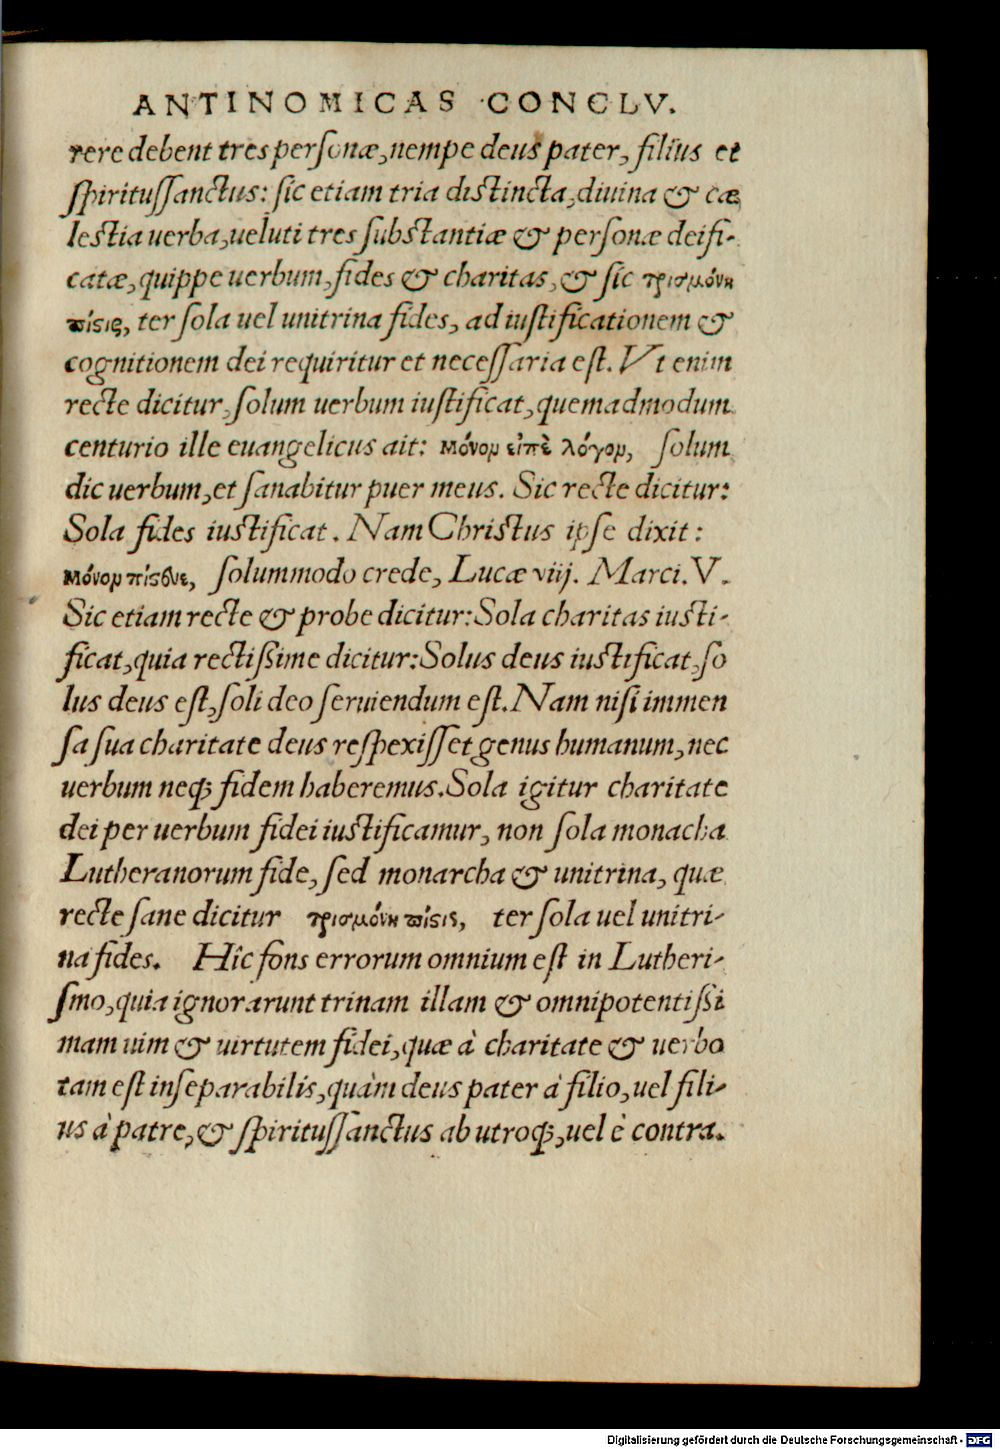 ANTINOMICAS CONCLV.
rere debent tres personæ, nempe deus pater, filius et
spiritussanctus: sic etiam tria distincta, diuina & cæ
lestia uerba, ueluti tres substantiæ & personæ deifi-
catæ, quippe uerbum, fides & charitas, & sic τρισμόνη
πίσις, ter sola uel unitrina fides, ad iustificationem &
cognitionem dei requiritur et necessaria est. Vt enim
recte dicitur, solum uerbum iustificat, quemadmodum
centurio ille euangelicus ait: μόνομ εἰπὲ λόγομ, solum
dic uerbum, et sanabitur puer meus. Sic recte dicitur:
Sola fides iustificat. Nam Christus ipse dixit:
μόνομ πίσευε, solummodo crede, Lucæ viij. Marci. V.
Sic etiam recte & probe dicitur: Sola charitas iusti-
ficat, quia rectißime dicitur: Solus deus iustificat, so
lus deus est, soli deo seruiendum est. Nam nisi immen
sa sua charitate deus respexisset genus humanum, nec
uerbum neq; fidem haberemus. Sola igitur charitate
dei per uerbum fidei iustificamur, non sola monacha
Lutheranorum fide, sed monarcha & unitrina, quæ
recte sane dicitur τρισμόνη πίσις, ter sola uel unitri-
na fides. Hîc fons errorum omnium est in Lutheri-
smo, quia ignorarunt trinam illam & omnipotentißi
mam uim & uirtutem fidei, quæ à charitate & uerbo
tam est inseparabilis, quàm deus pater à filio, uel fili-
us à patre, & spiritussanctus ab utroq;, uel è contra.
Digitalisierung gefördert durch die Deutsche Forschungsgemeinschaft - DFG